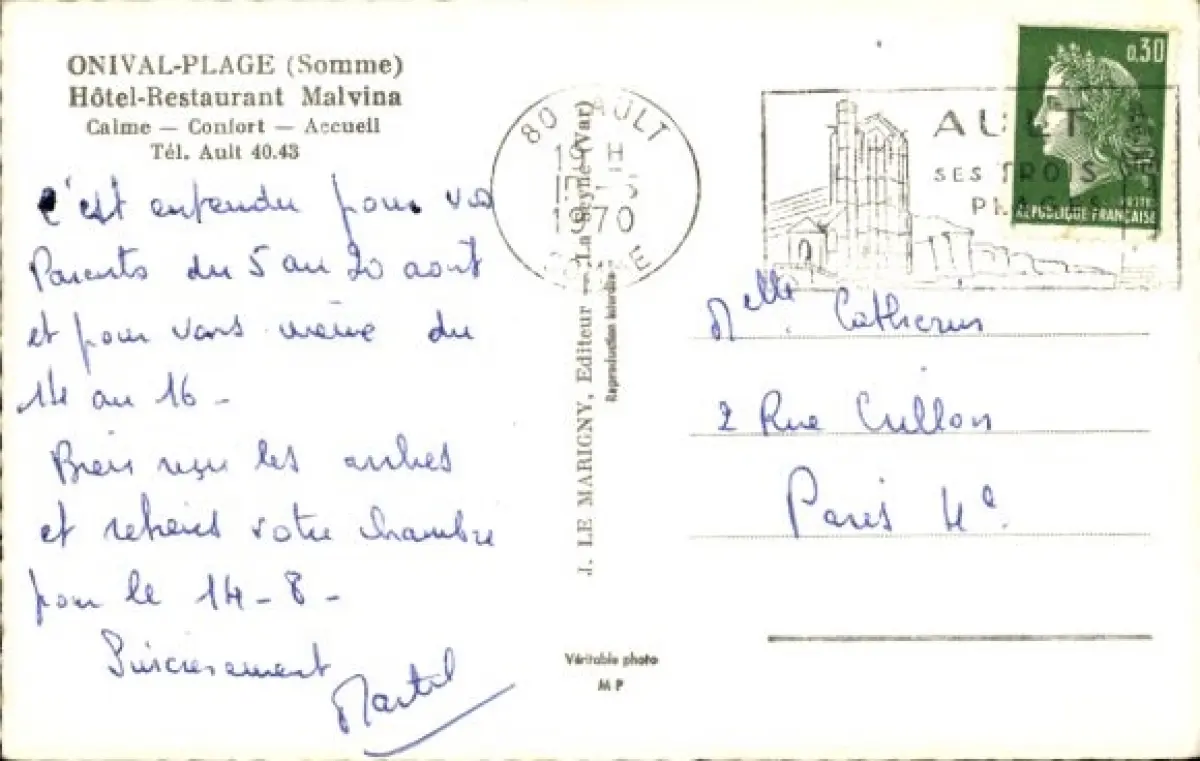 ONIVAL-PLAGE (Somme)
Hôtel-Restaurant Malvina
Calme — Confort — Accueil
Tél. Ault 40.43
c'est entendu pour vos
Parents du 5 au 20 aout
et pour vous même du
14 au 16 -
Bien reçu les arrhes
et retiens votre chambre
pour le 14-8-
Sincèrement
Martel
J. LE MARIGNY, Editeur — La Seyne (Var)
Reproduction interdite
Véritable photo
M P
80 AULT
H
1970
SOMME
AULT
SES TROIS
PLAGES
0,30
POSTES
REPUBLIQUE FRANÇAISE
Melle Catherin
2 Rue Crillon
Paris 4e.